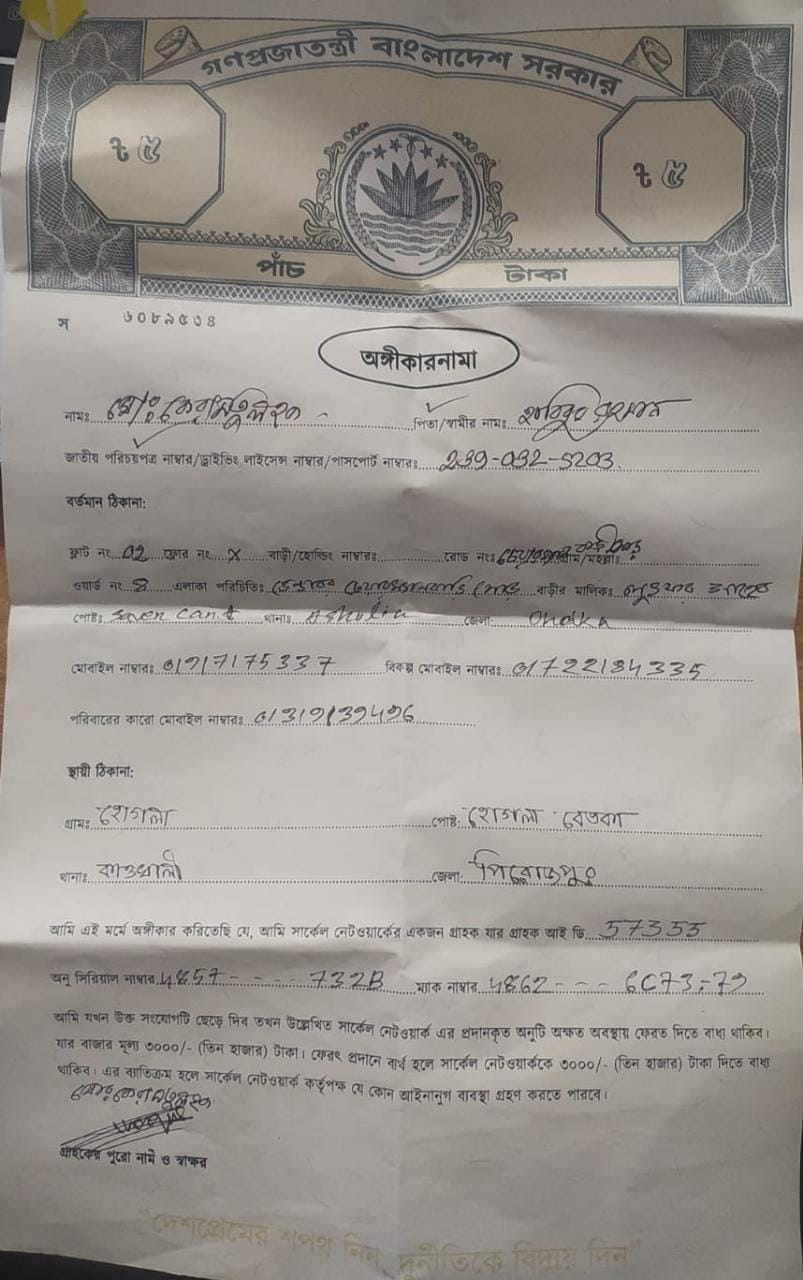 গণপ্রজাতন্ত্রী বাংলাদেশ সরকার
৳ ৫ ৳ ৫
পাঁচ টাকা
স ৬০৮৯৫৩৪
অঙ্গীকারনামা
নামঃ মোঃ কেরামতুল্লিহক পিতা/স্বামীর নামঃ হাবিবুর রহমান
জাতীয় পরিচয়পত্র নাম্বার/ড্রাইভিং লাইসেন্স নাম্বার/পাসপোর্ট নাম্বারঃ
বর্তমান ঠিকানা:
ফ্লাট নং A2 ফ্লোর নং X বাড়ী/হোল্ডিং নাম্বারঃ রোড নংঃ গ্রাম/মহল্লাঃ
ওয়ার্ড নং এলাকা পরিচিতিঃ বাড়ীর মালিকঃ
পোষ্টঃ Saver Cant থানাঃ Ashulia জেলা: Dhaka
মোবাইল নাম্বারঃ 01917175337 বিকল্প মোবাইল নাম্বারঃ 01722184335
পরিবারের কারো মোবাইল নাম্বারঃ
স্থায়ী ঠিকানা:
গ্রামঃ হোগলা পোষ্ট: হোগলা বেতকা
থানাঃ কাওখালী জেলা: পিরোজপুর
আমি এই মর্মে অঙ্গীকার করিতেছি যে, আমি সার্কেল নেটওয়ার্কের একজন গ্রাহক যার গ্রাহক আই ডি 57355
অনু সিরিয়াল নাম্বার 4857 - - - - 732B ম্যাক নাম্বার 4862 - - - 6C73:79
আমি যখন উক্ত সংযোগটি ছেড়ে দিব তখন উল্লেখিত সার্কেল নেটওয়ার্ক এর প্রদানকৃত অনুটি অক্ষত অবস্থায় ফেরত দিতে বাধ্য থাকিব।
যার বাজার মূল্য ৩০০০/- (তিন হাজার) টাকা। ফেরৎ প্রদানে ব্যর্থ হলে সার্কেল নেটওয়ার্ককে ৩০০০/- (তিন হাজার) টাকা দিতে বাধ্য
থাকিব। এর ব্যতিক্রম হলে সার্কেল নেটওয়ার্ক কর্তৃপক্ষ যে কোন আইনানুগ ব্যবস্থা গ্রহণ করতে পারবে।
গ্রাহকের পুরো নাম ও স্বাক্ষর
"দেশপ্রেমের শপথ নিন, দুর্নীতিকে বিদায় দিন"